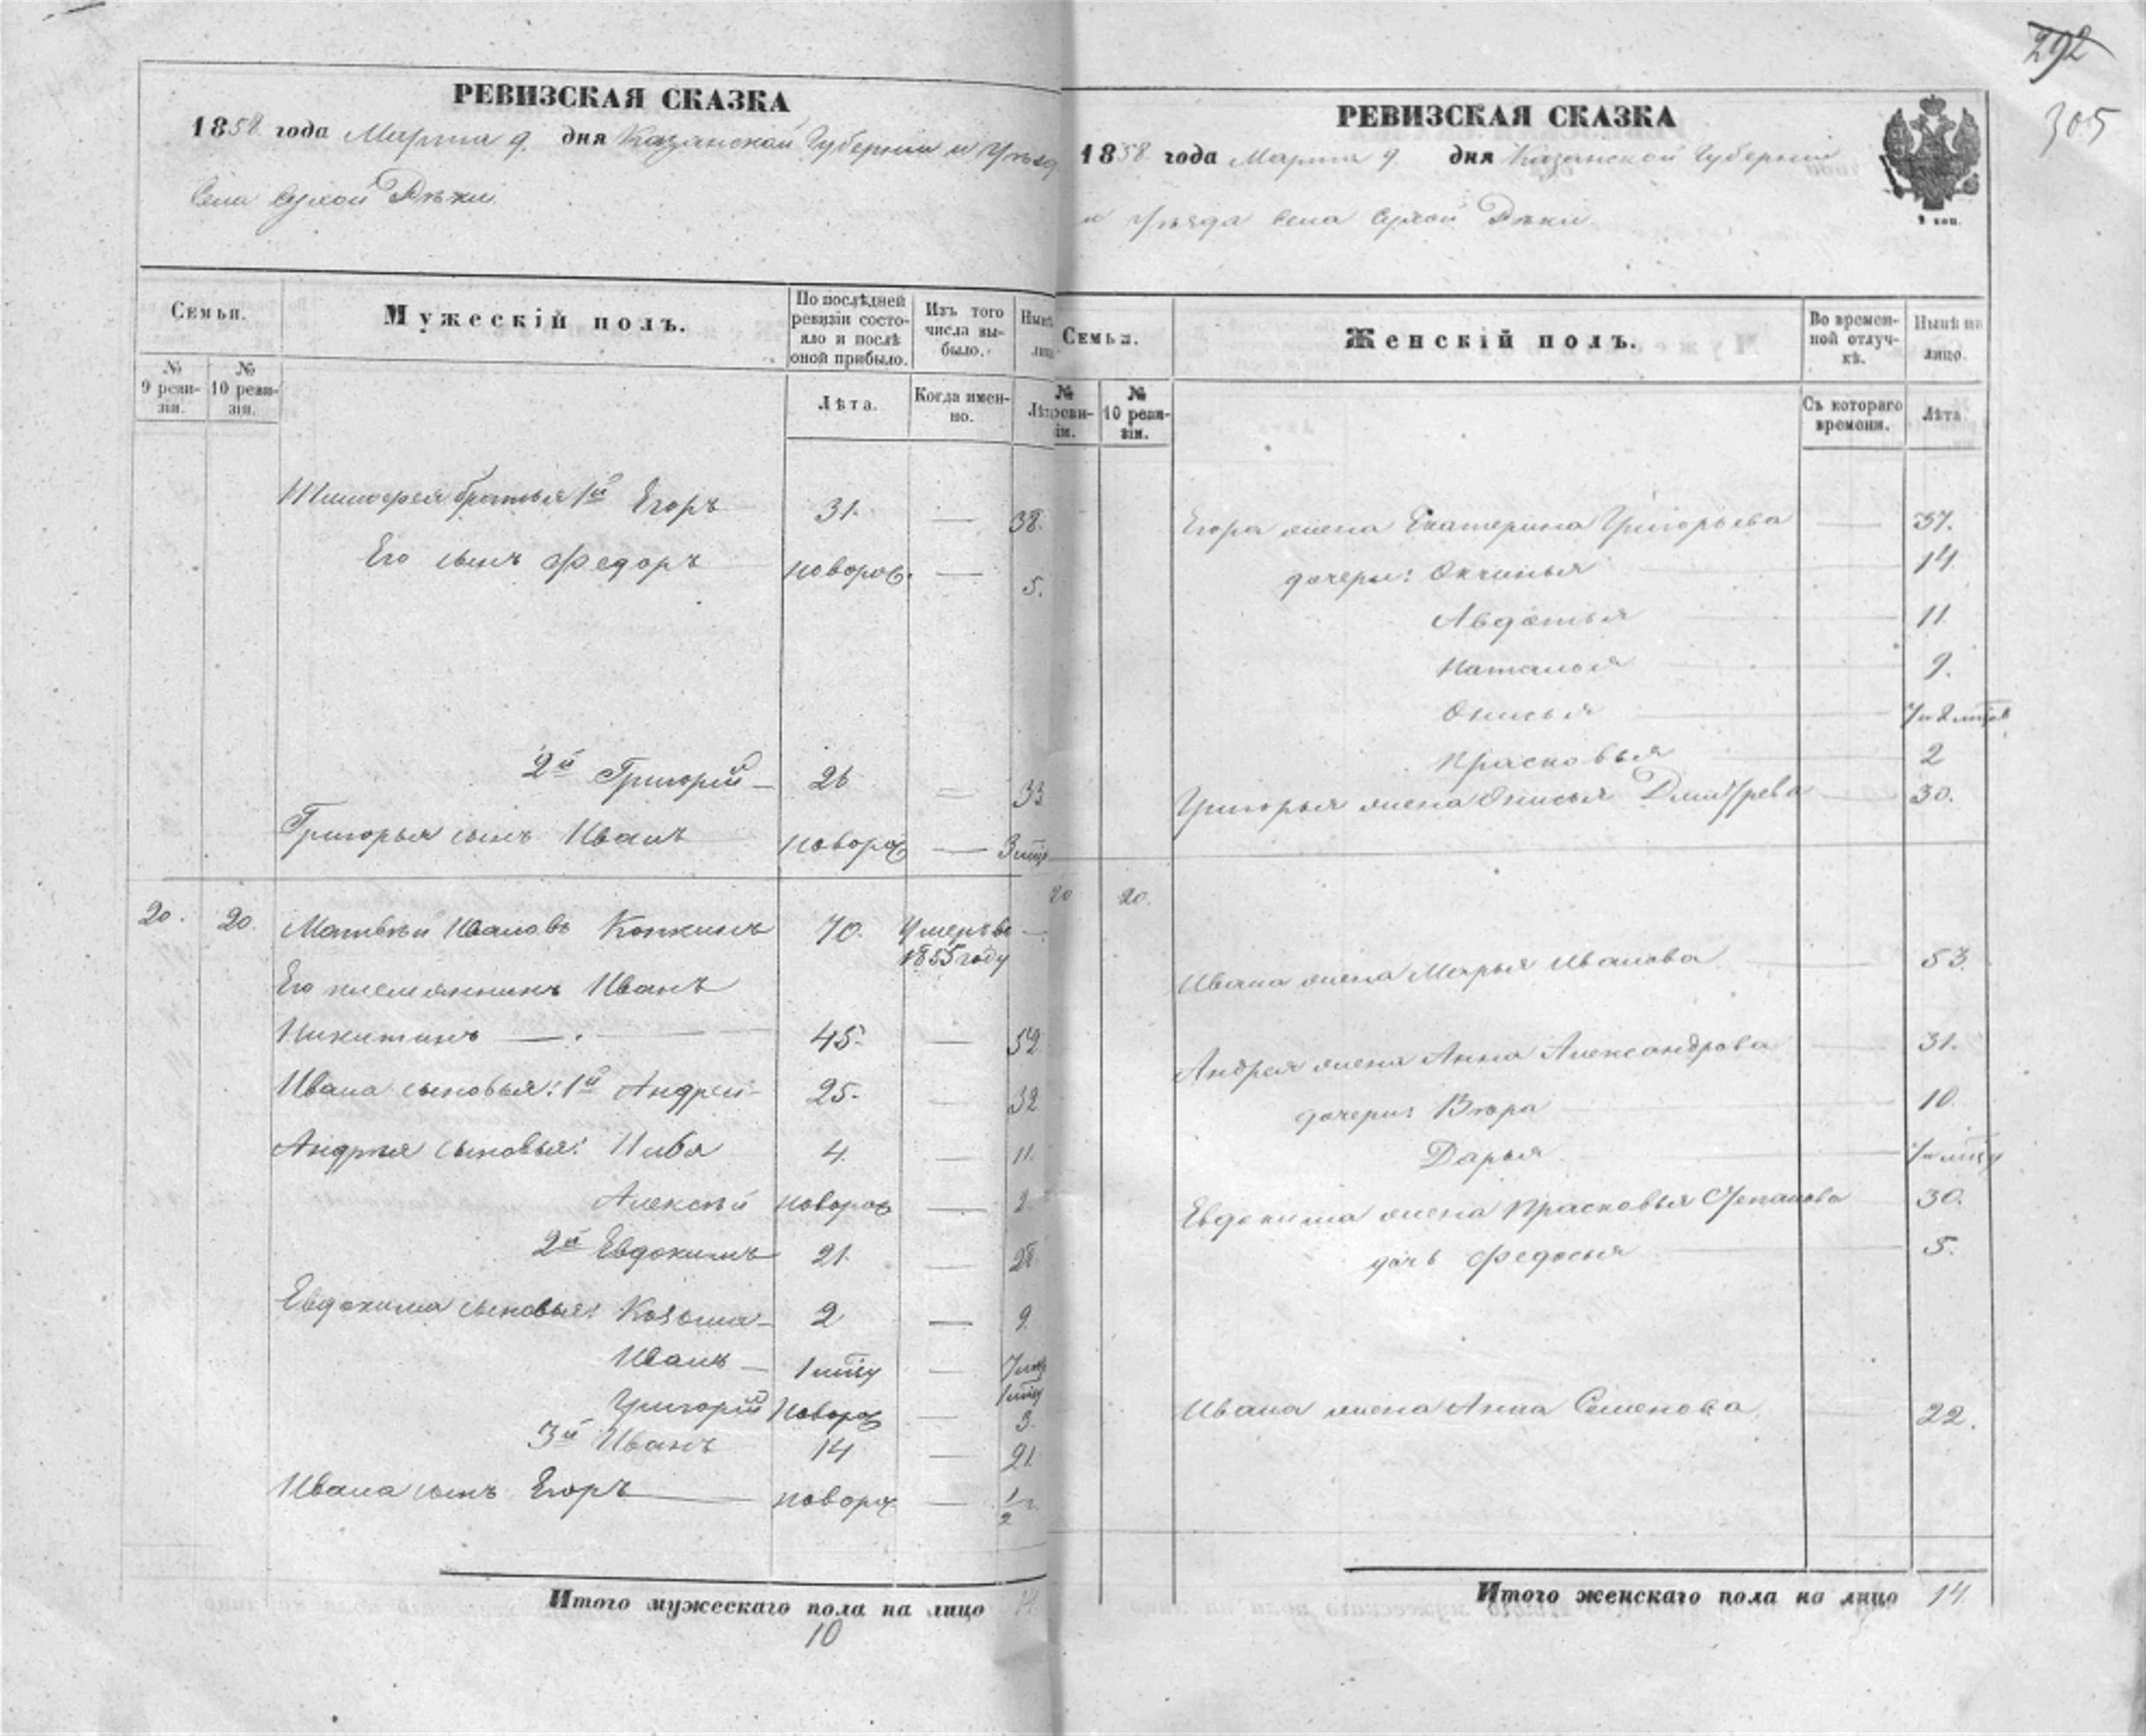 292
305
РЕВИЗСКАЯ СКАЗКА
1858 года Марта 9. дня Казанской Губернии и Уѣзда
Села Сухой Рѣки
Семьи.
Мужескій полъ.
По послѣдней ревизіи состояло и послѣ оной прибыло.
Изъ того числа выбыло.
Нынѣ
№ 9 ревизіи.
№ 10 ревизіи.
Лѣта.
Когда именно.
Лѣт
Тимофея братья 1й Егоръ 31. — 38.
Его сынъ Федоръ новорож. — 5.
2й Григорій — 26 — 33
Григорья сынъ Иванъ новорож — 3
20. 20. Матвѣй Ивановъ Конкинъ 70. Умеръ въ —
1855 году
Его племянникъ Иванъ
Никитинъ — 45. — 52
Ивана сыновья: 1й Андрей 25. — 32
Андрея сыновья: Илья 4. — 11.
Алексѣй новорож — 2
2й Евдокимъ 21. — 28.
Евдокима сыновья: Козьма — 2 — 9
Иванъ — —
Григорій новорож — 3.
3й Иванъ 14 — 21.
Ивана сынъ Егоръ — новорож — 1/2 г.
Итого мужескаго пола на лицо 14.
10
РЕВИЗСКАЯ СКАЗКА
1858 года Марта 9. дня Казанской Губерніи
и Уѣзда Села Сухой Рѣки.
Семьи.
Женскій полъ.
Во временной отлучкѣ.
Нынѣ на лицо.
№ реви-
зіи.
№ 10 ревизіи.
Съ котораго времени.
Лѣта
Егора жена Екатерина Григорьева — 37.
дочери: Окчинья — 14
Авдотья — 11
Наталья — 9.
Онисья —
Прасковья — 2
Григорья жена Онисья Дмитрева — 30.
20 20.
Ивана жена Марья Иванова — 53
Андрея жена Анна Александрова — 31.
дочери: Вѣра — 10
Дарья —
Евдокима жена Прасковья Степанова 30.
дочь Федосья — 5.
Ивана жена Анна Семенова — 22.
Итого женскаго пола на лицо 14